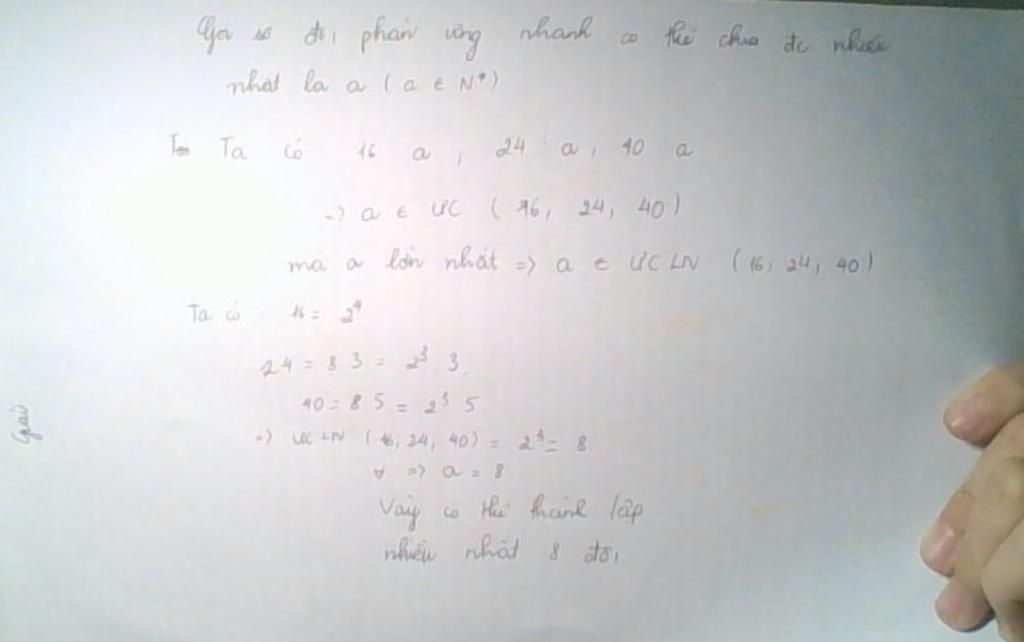 Gọi số đội phản ứng nhanh có thể chia đc nhiều
nhất là a ( a ∈ N* )
Ta có 16 a , 24 a , 40 a
=> a ∈ ƯC ( 16, 24, 40 )
mà a lớn nhất => a ∈ ƯCLN ( 16, 24, 40 )
Ta có : 16 = 2⁴
24 = 8 3 = 2³ 3
40 = 8 5 = 2³ 5
=> ƯCLN ( 16, 24, 40 ) = 2³ = 8
=> a = 8
Vậy có thể thành lập
nhiều nhất 8 đội
Giải